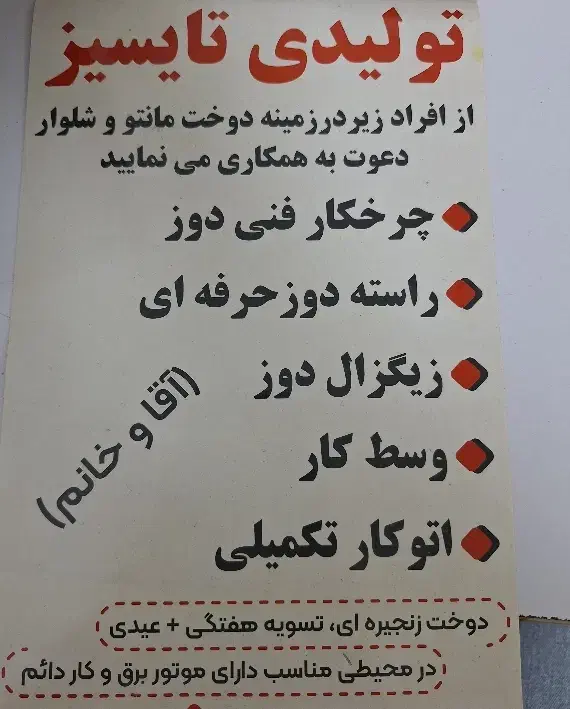 تولیدی تایسیز
از افراد زیردرزمینه دوخت مانتو و شلوار
دعوت به همکاری می نمایید
چرخکار فنی دوز
راسته دوزحرفه ای
زیگزال دوز
وسط کار
اتوکار تکمیلی
(آقا و خانم)
دوخت زنجیره ای، تسویه هفتگی + عیدی
در محیطی مناسب دارای موتور برق و کار دائم